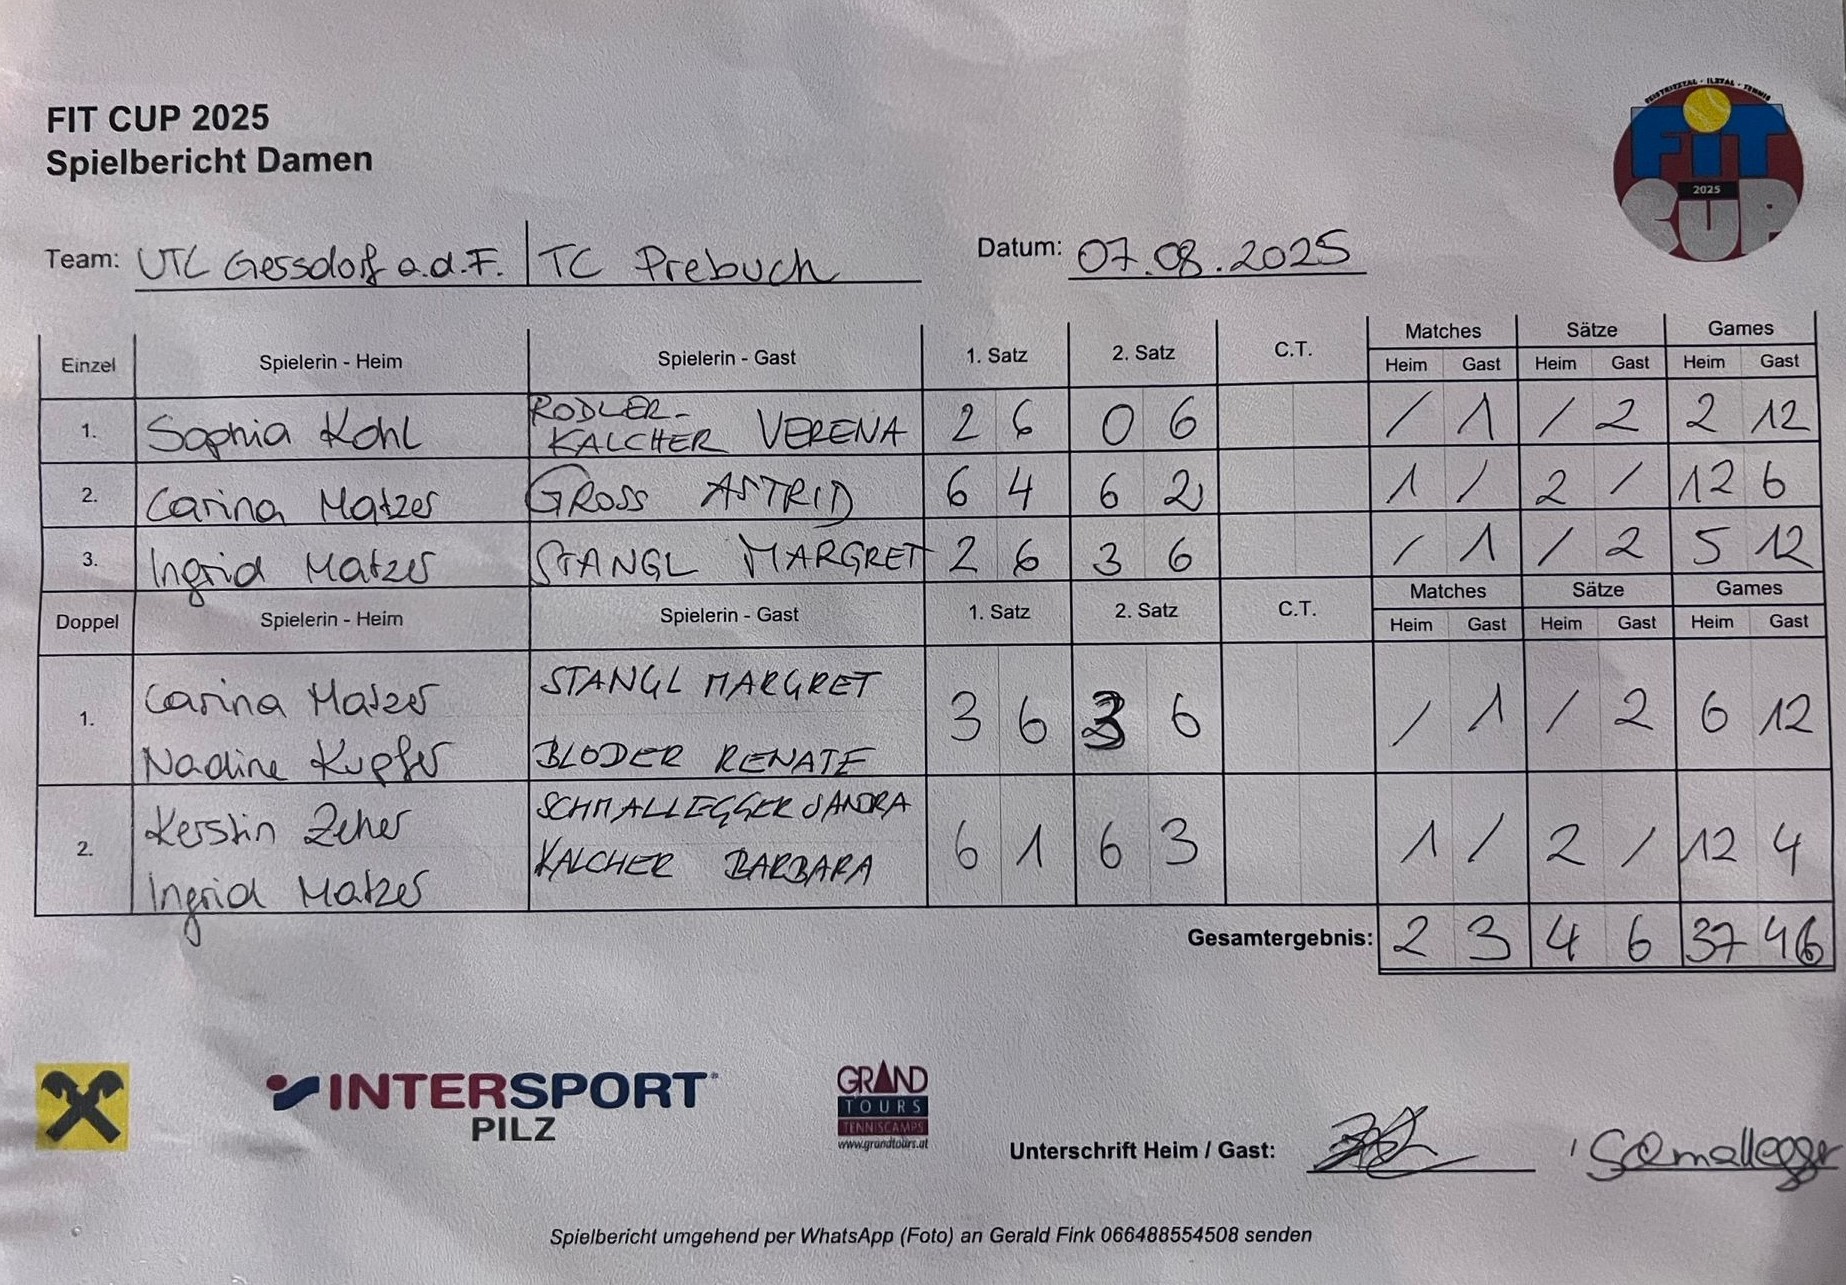 FEISTRITZTAL - ILZTAL - TENNIS
FIT
2025
CUP
FIT CUP 2025
Spielbericht Damen
Team: UTC Gessdorf a.d.F. | TC Prebuch Datum: 07.08.2025
Einzel Spielerin - Heim Spielerin - Gast 1. Satz 2. Satz C.T. Matches Sätze Games
Heim Gast Heim Gast Heim Gast
1. Sophia Kohl RODLER-
KALCHER VERENA 2 6 0 6 / 1 / 2 2 12
2. Carina Matzer GROSS ASTRID 6 4 6 2 1 / 2 / 12 6
3. Ingrid Matzer STANGL MARGRET 2 6 3 6 / 1 / 2 5 12
Doppel Spielerin - Heim Spielerin - Gast 1. Satz 2. Satz C.T. Matches Sätze Games
Heim Gast Heim Gast Heim Gast
1. Carina Matzer STANGL MARGRET 3 6 3 6 / 1 / 2 6 12
Nadine Kupfer BLODER RENATE
2. Kerstin Zeher SCHMALLEGGER SANDRA 6 1 6 3 1 / 2 / 12 4
Ingrid Matzer KALCHER BARBARA
Gesamtergebnis: 2 3 4 6 37 46
INTERSPORT
PILZ
GRAND
TOURS
TENNISCAMPS
www.grandtours.at
Unterschrift Heim / Gast: Schmallegger
Spielbericht umgehend per WhatsApp (Foto) an Gerald Fink 066488554508 senden